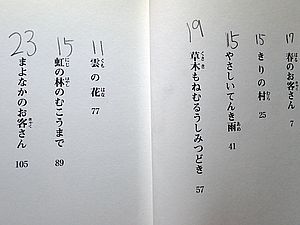 17 春のお客さん 7
15 きりの村 25
15 やさしいてんき雨 41
19 草木もねむるうしみつどき 57
11 雲の花 77
15 虹の林のむこうまで 89
23 まよなかのお客さん 105